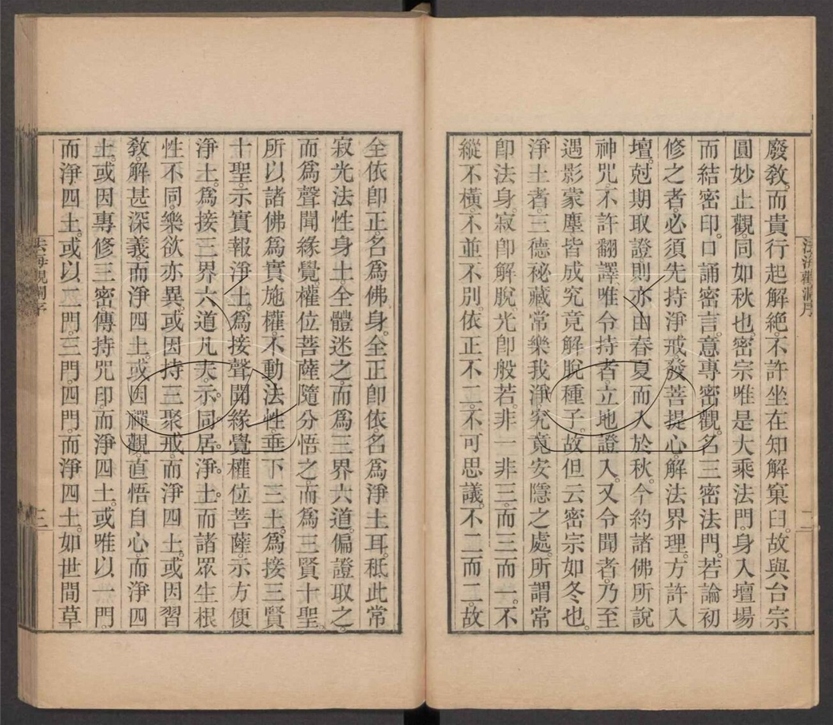 廢敎。而貴行起解絕。不許坐在知解窠臼。故與台宗
圓妙止觀同如秋也。密宗唯是大乘法門。身入壇場
而結密印。口誦密言。意專密觀。名三密法門。若論初
修之者。必須先持淨戒。發菩提心。解法界理。方許入
壇。尅期取證。則亦由春夏而入於秋。今約諸佛所說
神咒。不許翻譯。唯令持者立地證入。又令聞者。乃至
遇影蒙塵。皆成究竟解脫種子。故但云密宗如冬也。
淨土者。三德秘藏。常樂我淨。究竟安隱之處。所謂常
卽法身。寂卽解脫。光卽般若。非一非三。而三而一。不
縱不橫。不並不別。依正不二。不可思議。不二而二。故
二
全依卽正。名爲佛身。全正卽依。名爲淨土耳。秖此常
寂光法性身土。全體迷之。而爲三界六道。偏證取之。
而爲聲聞緣覺。權位菩薩。隨分悟之。而爲三賢十聖。
所以諸佛爲實施權。不動法性。垂下三土。爲接三賢
十聖。示實報淨土。爲接聲聞緣覺權位菩薩。示方便
淨土。爲接三界六道凡夫。示同居淨土。而諸眾生根
性不同。樂欲亦異。或因持三聚戒。而淨四土。或因習
敎。解甚深義。而淨四土。或因禪觀。直悟自心。而淨四
土。或因專修三密。傳持咒印。而淨四土。或唯以一門
而淨四土。或以二門。三門。四門。而淨四土。如世間草
法海觀瀾序
三